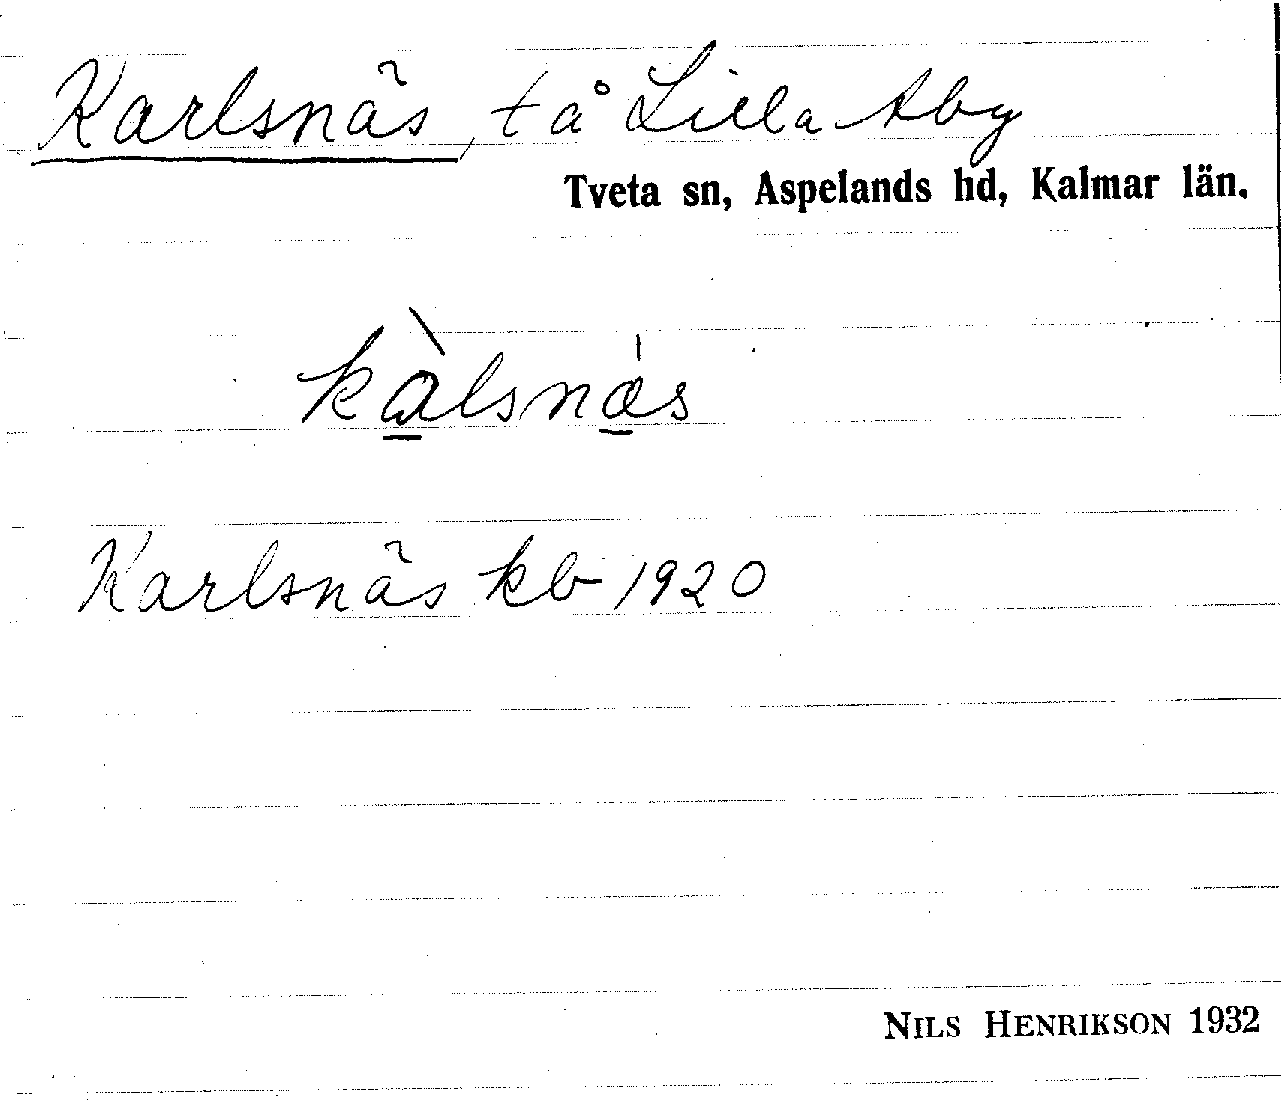 Karlsnäs, t å Lilla Aby
Tveta sn, Aspelands hd, Kalmar län.
kàlsnæ̀s
Karlsnäs kb 1920
NILS HENRIKSON 1932